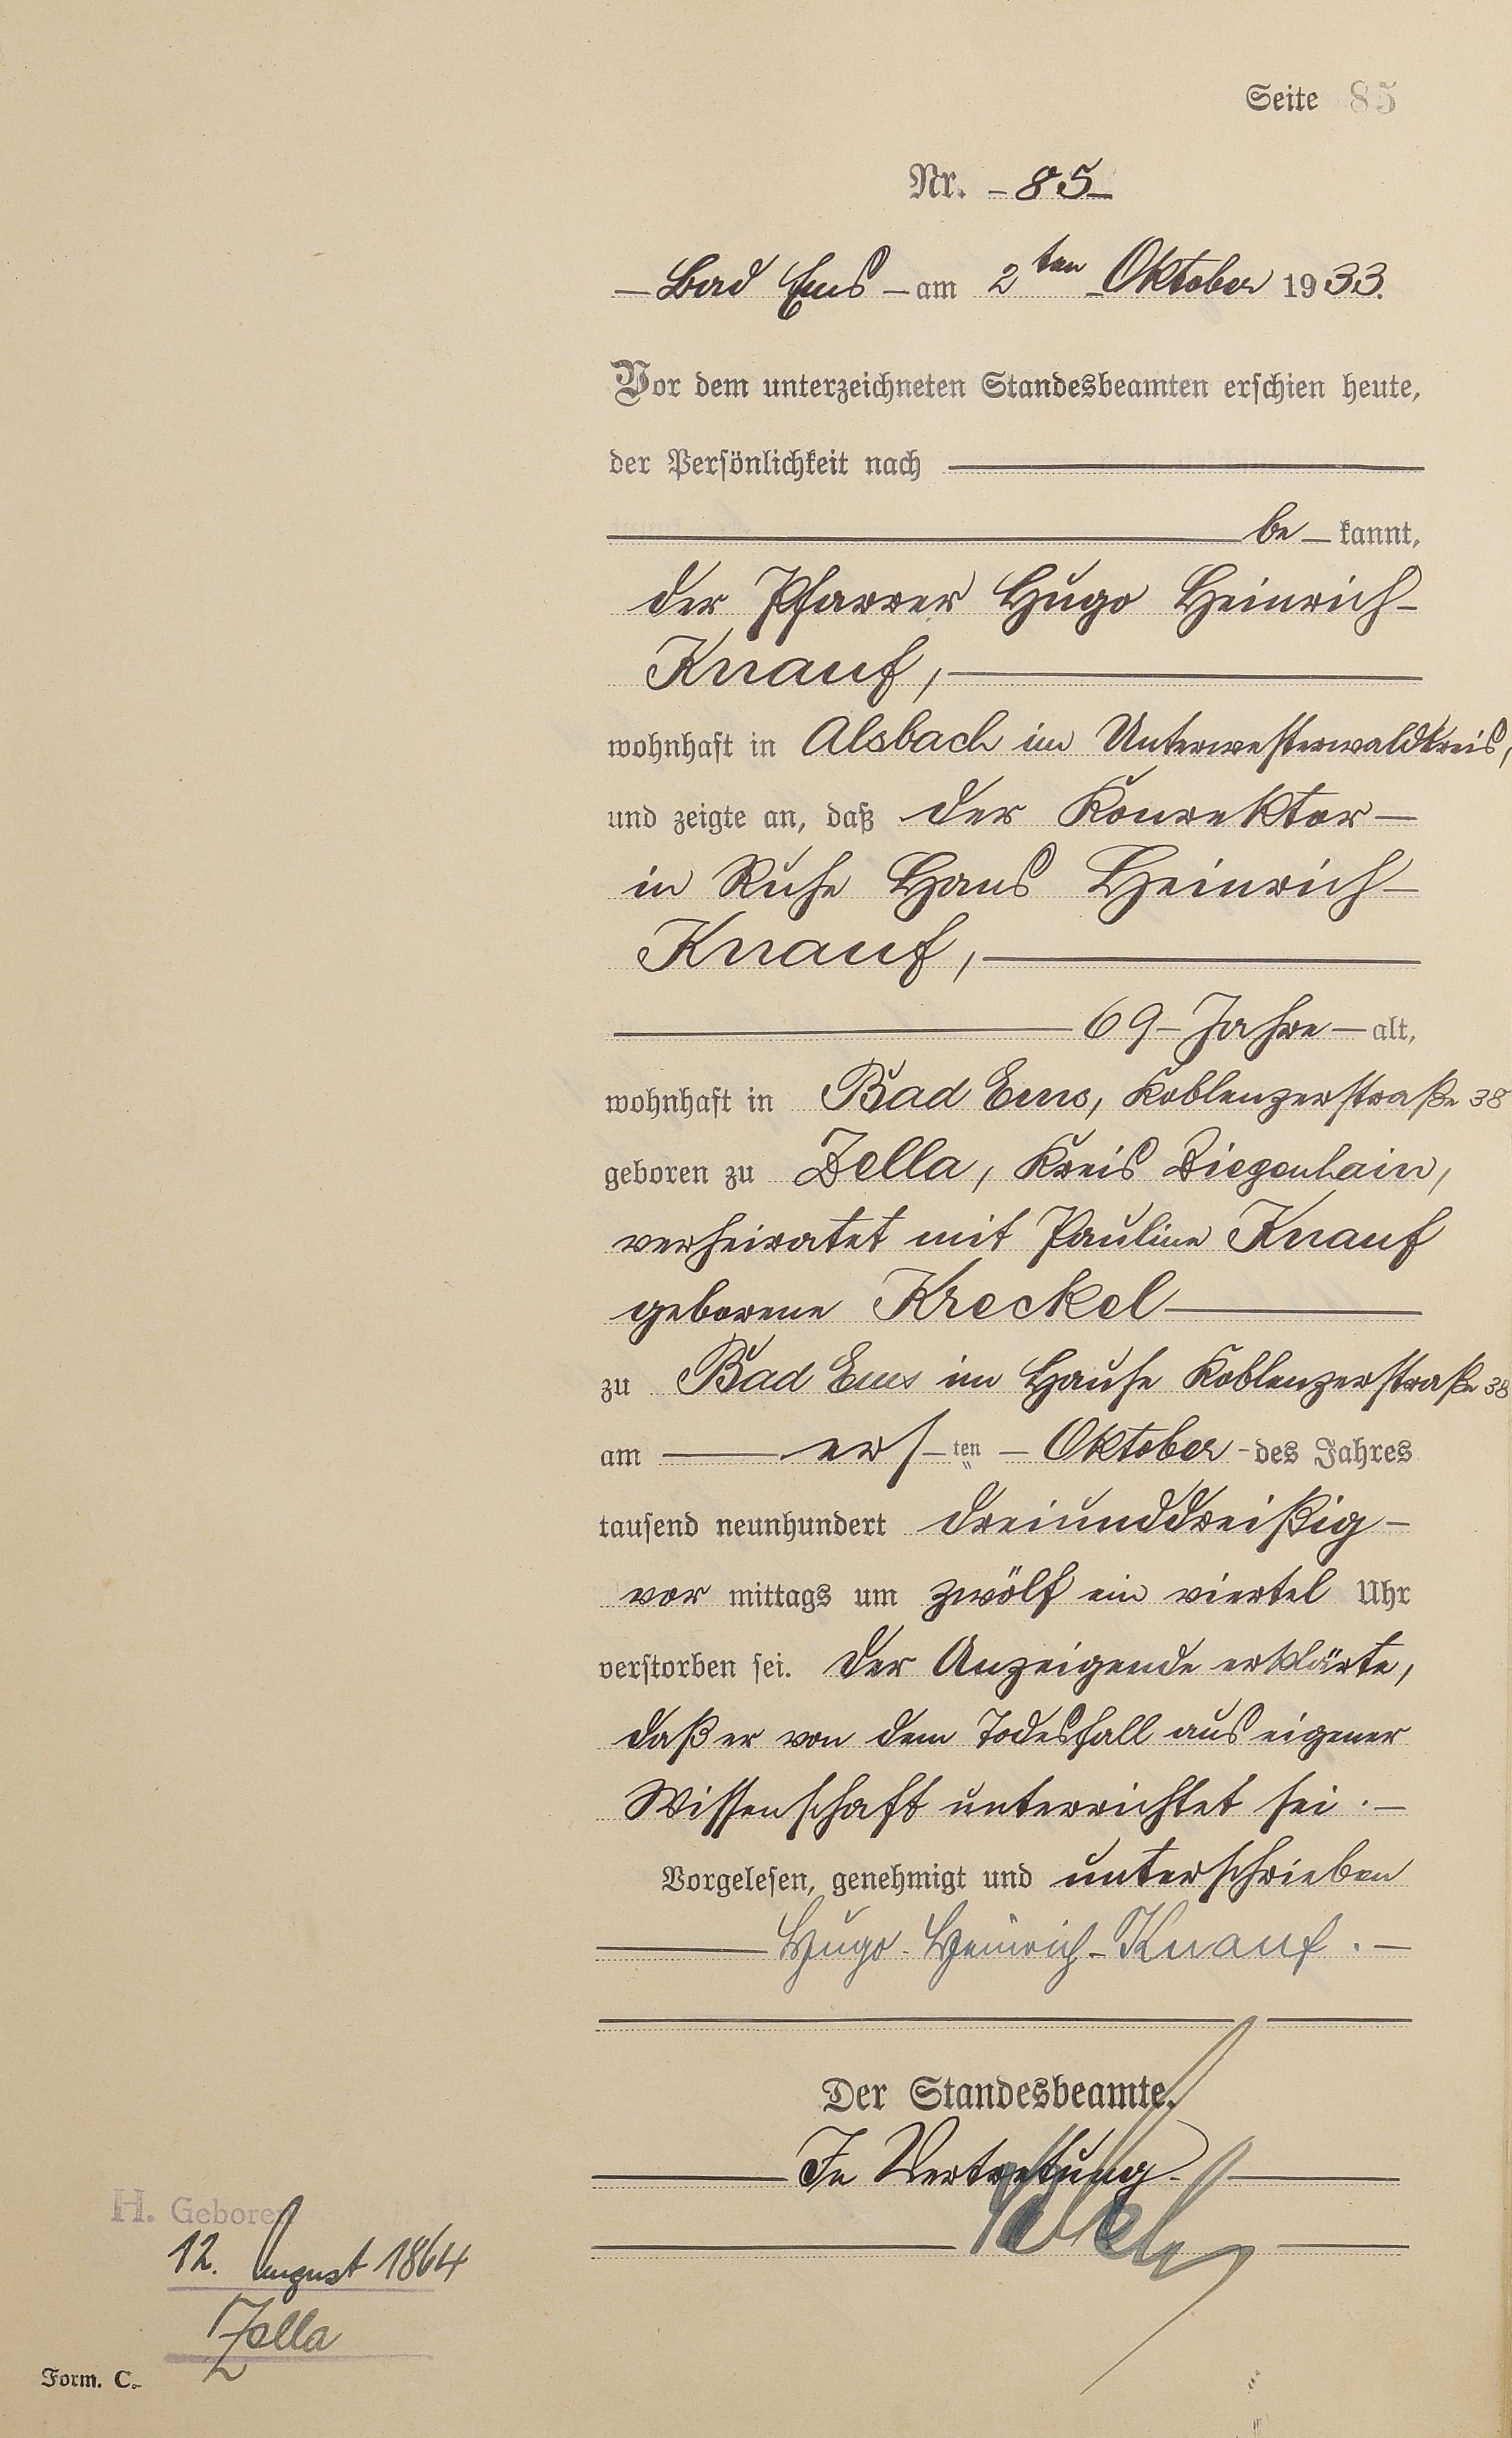 Seite 85
Nr. - 85 -
- Bad Ems - am 2ten Oktober 1933.
Vor dem unterzeichneten Standesbeamten erschien heute,
der Persönlichkeit nach
be - kannt,
der Pfarrer Hugo Heinrich -
Knauf,
wohnhaft in Alsbach im Unterwesterwaldkreis,
und zeigte an, daß der Konrektor -
in Ruhe Hans Heinrich -
Knauf,
69 - Jahre - alt,
wohnhaft in Bad Ems, Koblenzerstraße 38
geboren zu Zella, Kreis Ziegenhain,
verheiratet mit Pauline Knauf
geborene Kreckel
zu Bad Ems im Hause Koblenzerstraße 38
am ers - ten - Oktober - des Jahres
tausend neunhundert dreiunddreißig -
vor mittags um zwölf ein viertel Uhr
verstorben sei. Der Anzeigende erklärte,
daß er von dem Todesfall aus eigener
Wissenschaft unterrichtet sei. -
Vorgelesen, genehmigt und unterschrieben
Hugo - Heinrich - Knauf. -
Der Standesbeamte.
In Vertretung
H. Geboren
12. August 1864
Zella
Form. C.